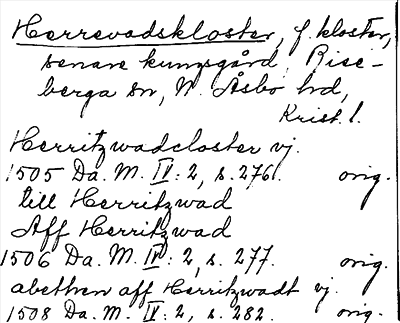 Herrevadskloster, f. kloster,
senare kungsgård, Rise-
berga sn, N. Åsbo hd,
Krist. l.
Herritzwadcloster vj.
1505 Da. M. IV: 2, s. 276. orig.
till Herritzwad
Aff Herritzwad
1506 Da. M. IV: 2, s. 277. orig.
abethen aff Herritzwadt vj.
1508 Da. M. IV: 2, s. 282. orig.